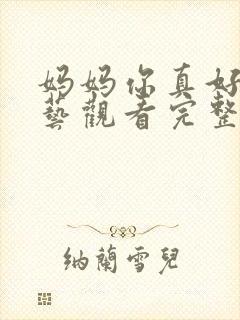 妈妈你真好
藝觀看完整
纳蘭雪兒